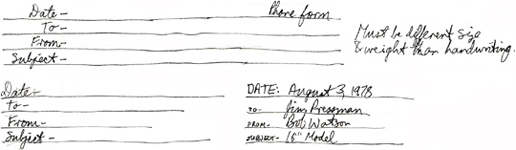 Date- Phone form
To-
From-
Subject-
Must be different size
& weight than handwriting.
Date-
to-
From-
Subject-
DATE: August 3, 1978
TO- Jim Pressman
FROM- Bob Watson
SUBJECT- 18" Model